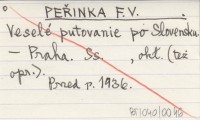 PEŘINKA F.V.
Veselé putovanie po Slovensku
- Praha. Ss. , okt. (též
opr.).
Pred r. 1936.